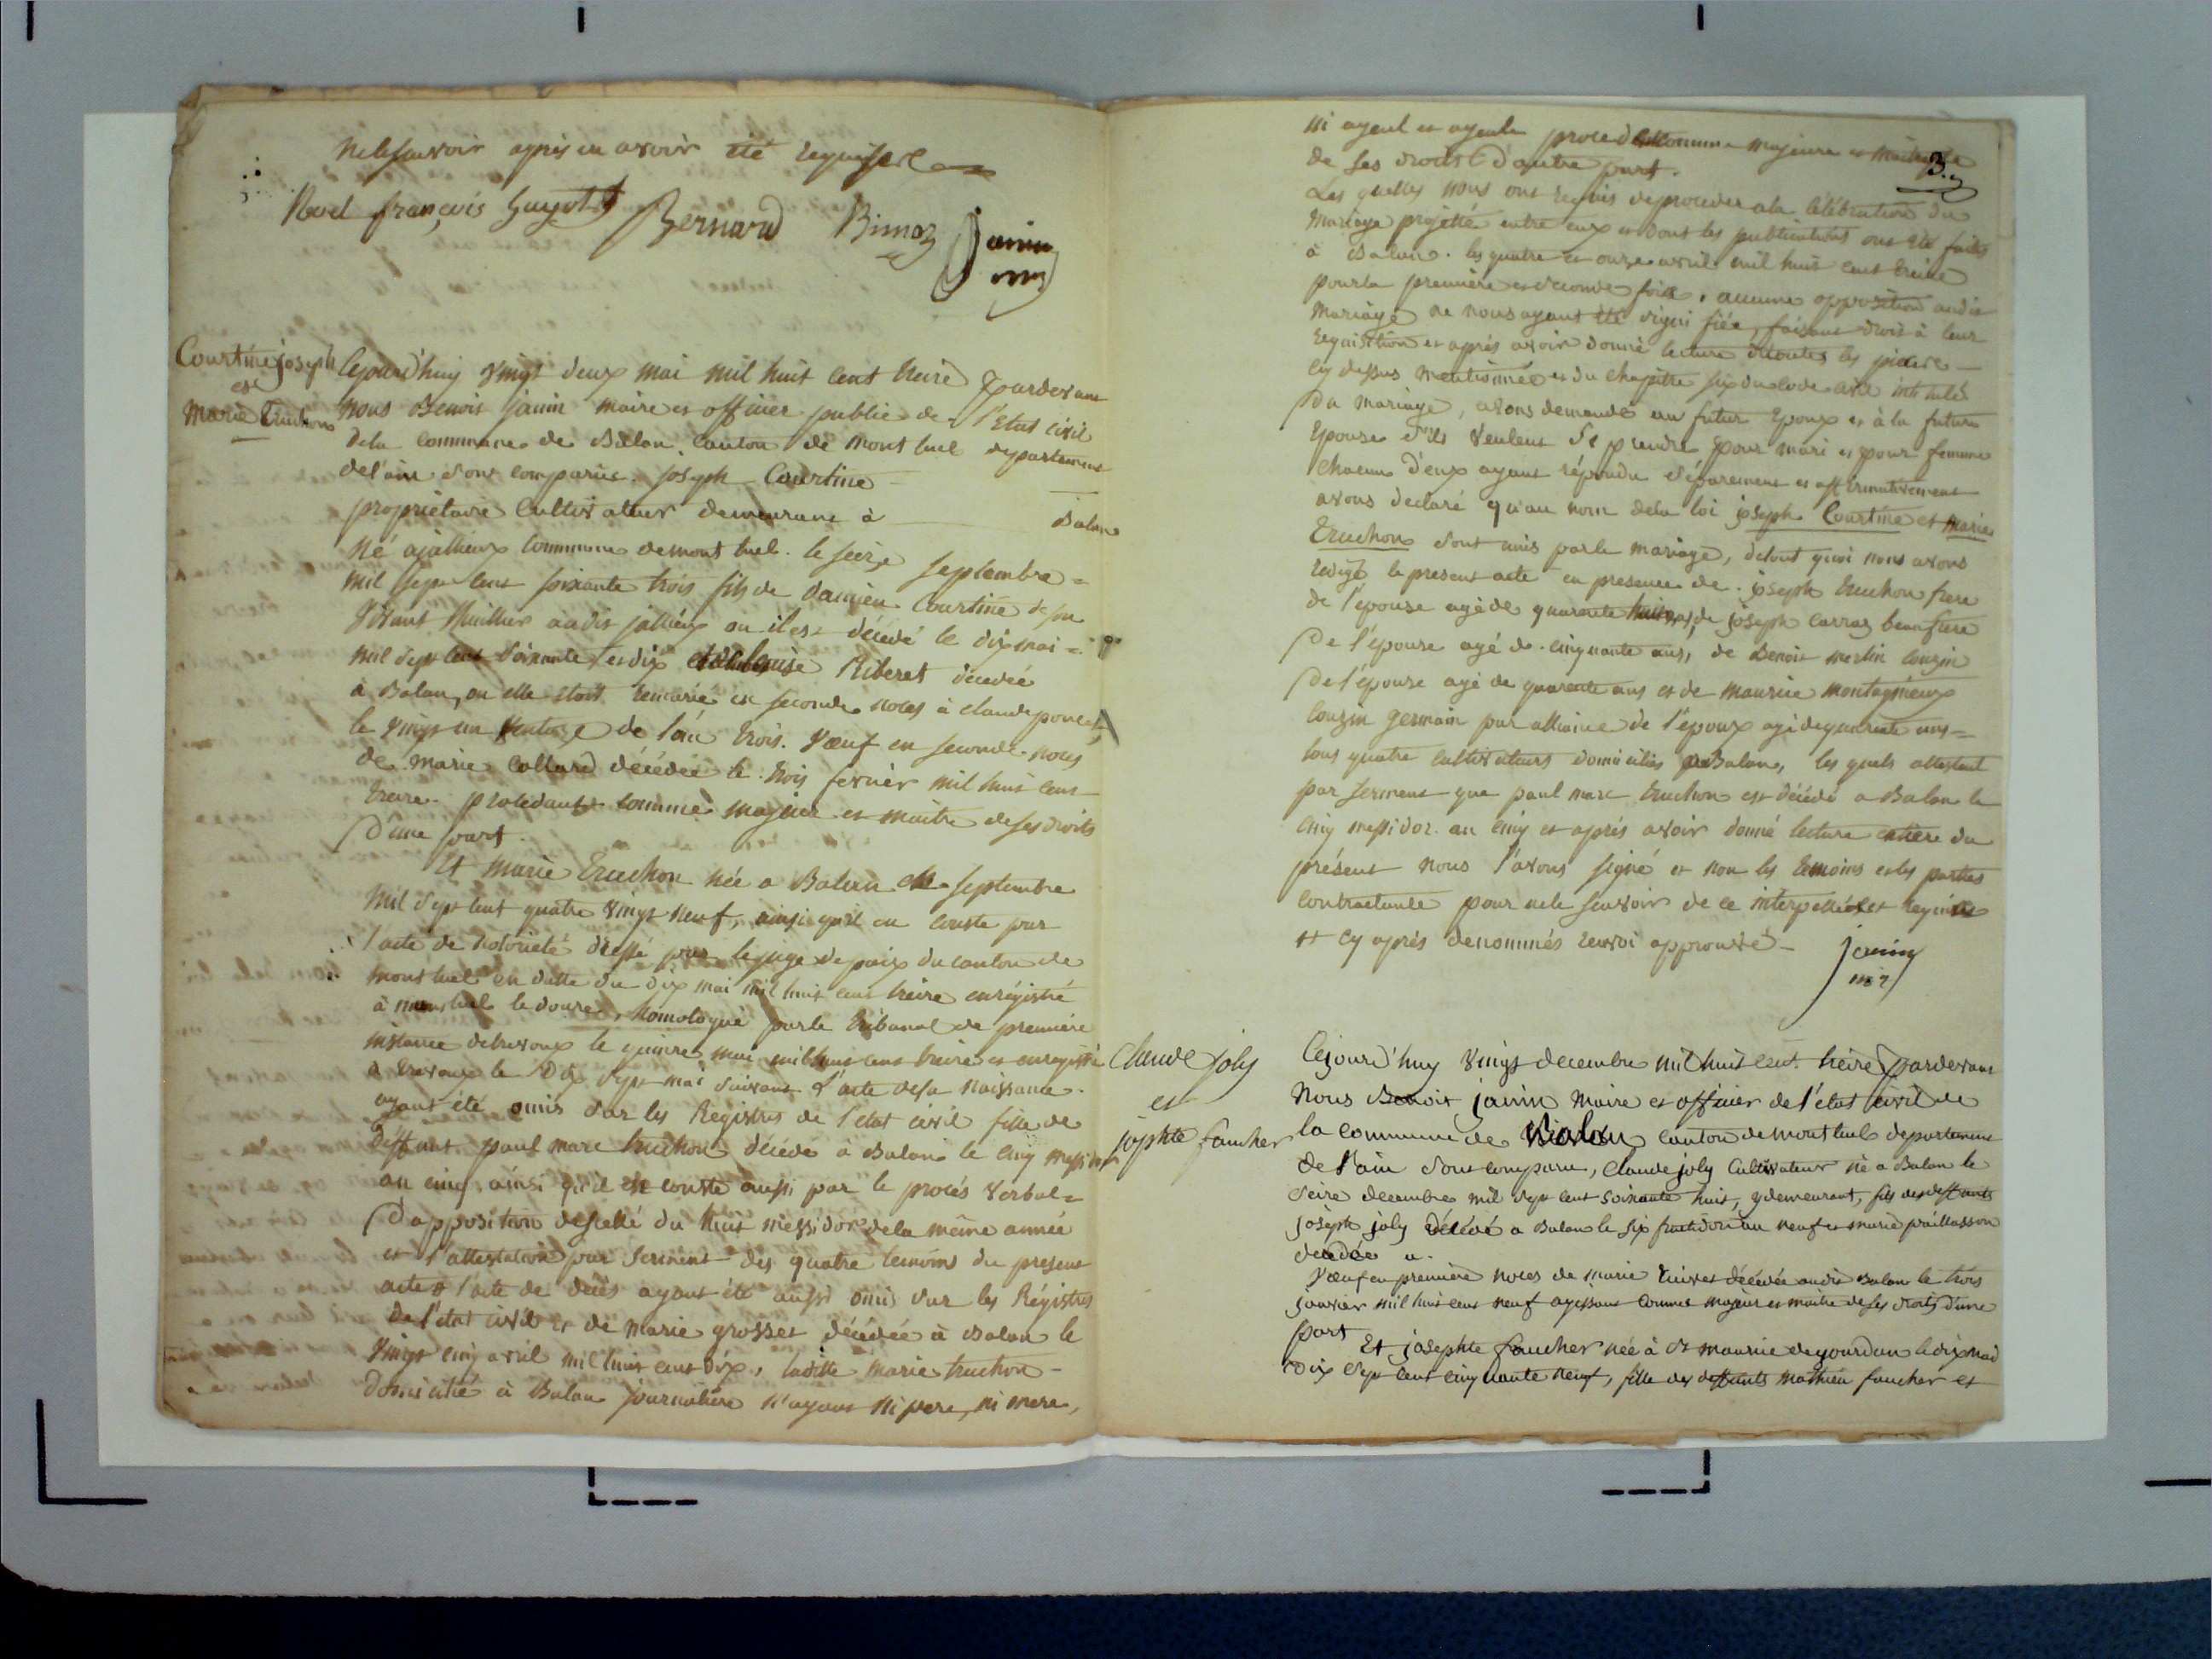 ne le savoir après en avoir été requis
Noel françois Guyot Bernard Bimoz Janin
Courtine joseph
et
Marie Truchon
Cejourd'huy vingt deux mai mil huit cent treize pardevant
nous Benoit janin maire et officier public de l'Etat civil
dela commune de Balan, canton de mont luel departement
de l'ain sont comparus. joseph Courtine
propriétaire Cultivateur demeurant à Balan
né a jallieux commune demont luel. le seize septembre =
mil sept cent soixante trois fils de Damien Courtine de son
Vivant audit jallieux ou il est décédé le dix mai =
mil sept cent soixante et dix Riberet décédée
à Balan, ou elle etoit remariée en seconde noces à claude poncet
le vingt un ventose de l'an trois. Vœuf en seconde noces
de marie Collard décédée le trois fevrier mil huit cent
treize. procedant comme majeur et maitre de ses droits
d'une part.
Et Marie Truchon née a Balan en septembre
mil sept cent quatre vingt neuf, ainsi qu'il en conste par
l'acte de notorieté dressé par le juge de paix du canton de
mont luel en datte du dix mai mil huit cent treize enrégistré
à montluel le douze, homologué par le tribunal de premiere
instance detrevoux le quinze mai mil huit cent treize et enregistré
à trevoux le dix sept mai suivant l'acte desa naissance.
ayant été omis sur les Registres de l'etat civil fille de
deffunt paul marc truchon décédé à Balan le cinq messidor
an cinq ainsi qu'il en conste aussi par le procés verbal =
d'apposition descellé du huit messidor dela même année
et l'attestation par serment des quatre temoins du present
acte # l'acte de décès ayant été aussi omis sur les Régistres
de l'etat civil et de marie grosset décédée à Balan le
vingt cinq avril mil huit cent dix, laditte marie truchon -
domiciliée à Balan journaliere n'ayant ni pere, ni mere,
3.
ni ayeul et ayeule procedant comme majeure et maitresse
de ses droits d'autre part.
Les quelles nous ont requis deproceder ala célébration du
mariage projetté entre eux et dont les publications ont été faites
à Balan. les quatre et onze avril mil huit cent treize
pour la première et seconde fois, aucune opposition audit
mariage ne nous ayant été signifiée, faisant droit à leur
requisition et aprés avoir donné lecture detoutes les pieces -
cy dessus mentionnées et du chapitre six du code civil intitulés
Du mariage, avons demandé au futur Epoux et à la future
Epouse s'ils veulent se prendre pour mari et pour femme
chacun d'eux ayant répondu séparement et affirmativement
avons declaré qu'au nom dela loi joseph Courtine et Marie
Truchon sont unis parle mariage, detout quoi nous avons
redigé le present acte en presence de. joseph truchon frere
de l'épouse agé de quarante huit ans, de joseph carraz beaufrere
De l'épouse agé de. cinquante ans, de Benoit merlin couzin
De l'épouse agé de quarante ans et de maurice montagnieux
couzin germain par alliance de l'époux agé dequarante ans =
tous quatre cultivateurs domiciliés a Balan, les quels attestent
par serment que paul marc truchon est décédé a Balan le
cinq messidor. an cinq et aprés avoir donné lecture entière du
présent nous l'avons signé et non les temoins et les parties
contractante pour nele scavoir de ce interpellés et requis
# cy aprés denommés renvoi approuvé -
janin
Claude joly
et
jophte faucher
Cejourd'huy vingt decembre mil huit cent treize pardevant
Nous Benoit janin maire et officier de l'état civil de
la commune de Balan canton de mont luel departement
de l'ain sont comparu, Claude joly Cultivateur né a Balan le
seize decembre mil sept cent soixante huit, y demeurant, fils des deffunts
joseph joly décédé a Balan le six fructidor an neuf et marie paillasson
decedée a.
Vœuf en premiere noces de marie décédée audit Balan le trois
janvier mil huit cent neuf agissant comme majeur et maitre de ses droits d'une
part Et josephte faucher née à St maurice degourdan le dix mai
dix sept cent cinquante neuf, fille des deffunts mathieu faucher et